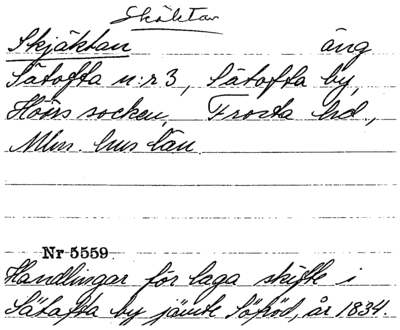 Skäktan
Skjäktan äng
Sätofta n:r 3, Sätofta by,
Höörs socken, Frosta hd,
Mlm. hus län.
Nr 5559
Handlingar för laga skifte i
Sätofta by jämte Söröd, år 1834.